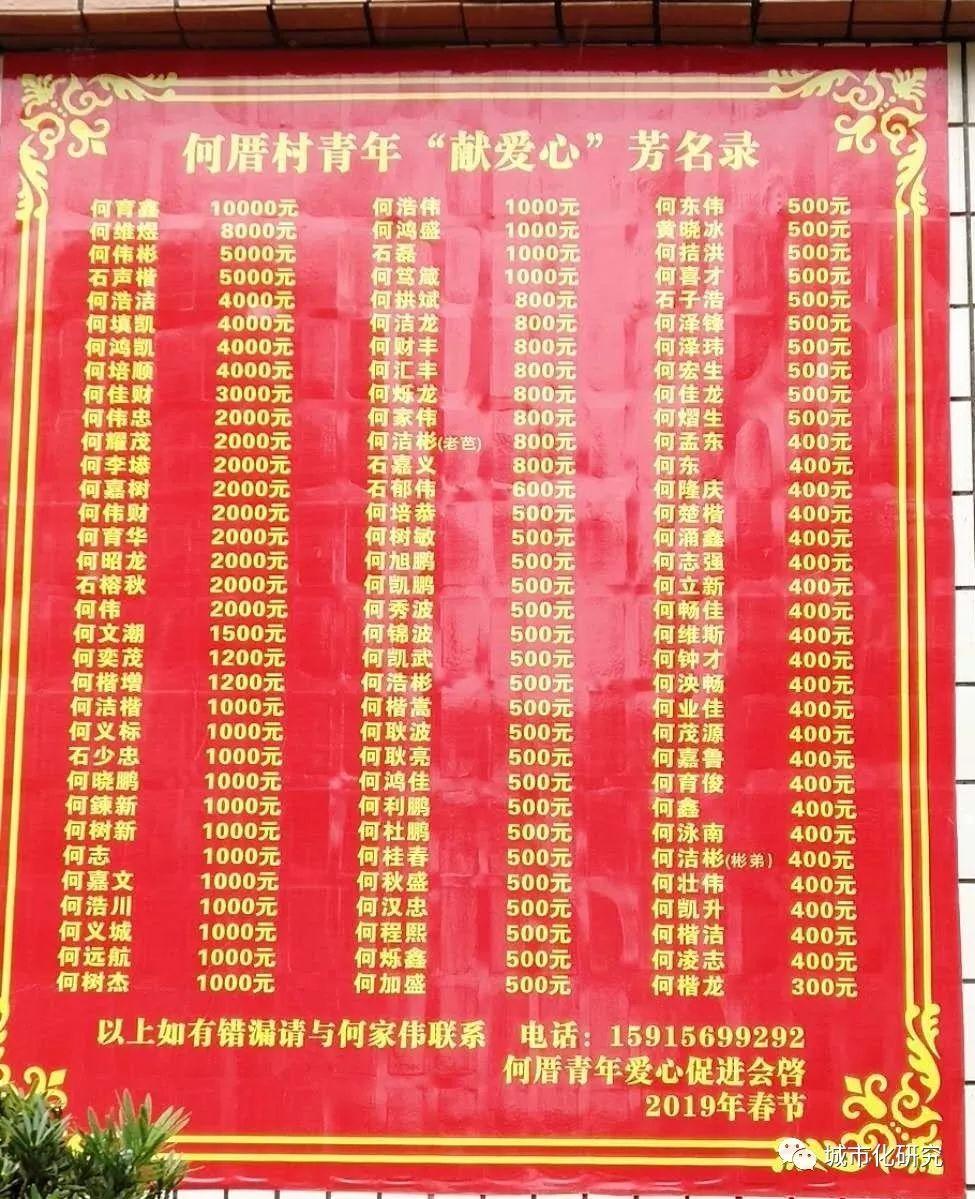 何厝村青年“献爱心”芳名录
何育鑫 10000元 何浩伟 1000元 何东伟 500元
何维煜 8000元 何鸿盛 1000元 黄晓冰 500元
何伟彬 5000元 石磊 1000元 何拮洪 500元
石声楷 5000元 何笃箴 1000元 何喜才 500元
何浩洁 4000元 何栱斌 800元 石子浩 500元
何填凯 4000元 何洁龙 800元 何泽锋 500元
何鸿凯 4000元 何财丰 800元 何泽玮 500元
何培顺 4000元 何汇丰 800元 何宏生 500元
何佳财 3000元 何烁龙 800元 何佳龙 500元
何伟忠 2000元 何家伟 800元 何熠生 500元
何耀茂 2000元 何洁彬(老芭) 800元 何孟东 400元
何李塨 2000元 石嘉义 800元 何东 400元
何嘉树 2000元 石郁伟 600元 何隆庆 400元
何伟财 2000元 何培恭 500元 何楚楷 400元
何育华 2000元 何树敏 500元 何涌鑫 400元
何昭龙 2000元 何旭鹏 500元 何志强 400元
石榕秋 2000元 何凯鹏 500元 何立新 400元
何伟 2000元 何秀波 500元 何畅佳 400元
何文潮 1500元 何锦波 500元 何维斯 400元
何奕茂 1200元 何凯武 500元 何钟才 400元
何楷增 1200元 何浩彬 500元 何泱畅 400元
何洁楷 1000元 何楷嵩 500元 何业佳 400元
何义标 1000元 何耿波 500元 何茂源 400元
石少忠 1000元 何耿亮 500元 何嘉鲁 400元
何晓鹏 1000元 何鸿佳 500元 何育俊 400元
何錬新 1000元 何利鹏 500元 何鑫 400元
何树新 1000元 何杜鹏 500元 何泳南 400元
何志 1000元 何桂春 500元 何洁彬(彬弟) 400元
何嘉文 1000元 何秋盛 500元 何壮伟 400元
何浩川 1000元 何汉忠 500元 何凯升 400元
何义城 1000元 何程熙 500元 何楷洁 400元
何远航 1000元 何烁鑫 500元 何凌志 400元
何树杰 1000元 何加盛 500元 何楷龙 300元
以上如有错漏请与何家伟联系 电话：15915699292
何厝青年爱心促进会启
2019年春节
城市化研究